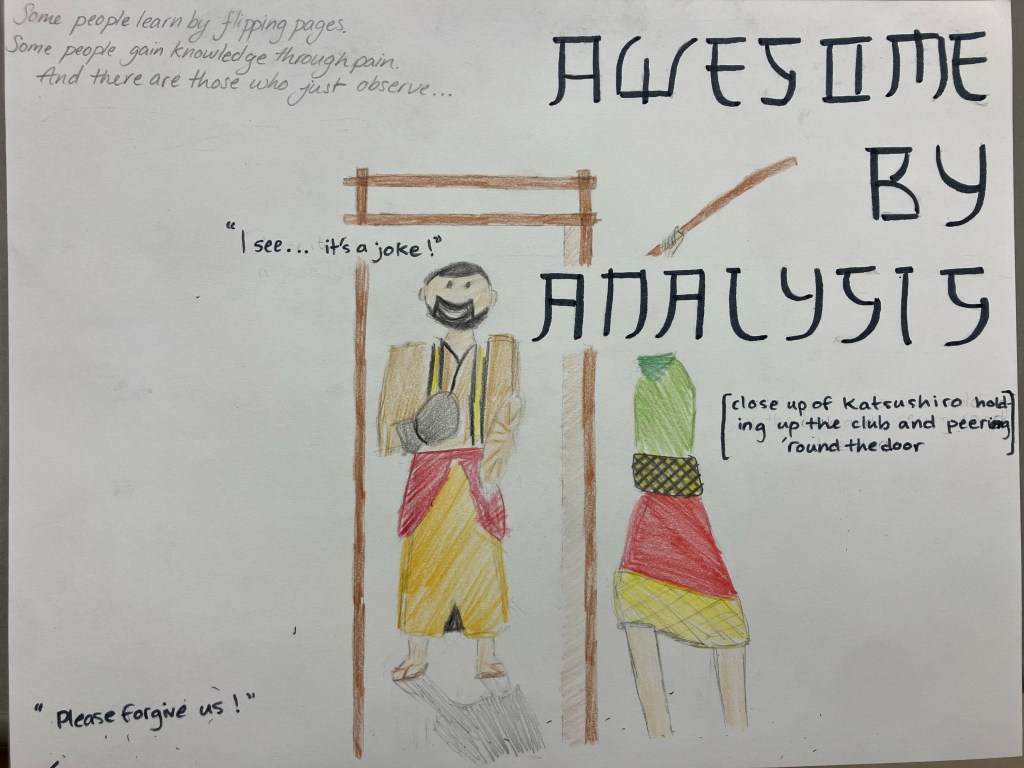 Some people learn by flipping pages.
Some people gain knowledge through pain.
And there are those who just observe...
AWESOME
BY
ANALYSIS
"I see... it's a joke!"
[close up of Katsushiro hold-
ing up the club and peering
'round the door]
"Please forgive us!"